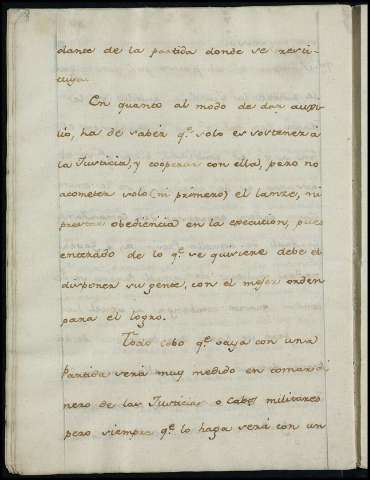 dante de la partida donde se resti-
tuya.
En quanto al modo de dar auxi-
lio, ha de saber q.e solo es sostener à
la Justicia, y cooperar con ella, pero no
acometer solo (ni primero) el lanze, ni
prestar obediencia en la execucion, pues
enterado de lo q.e se quisiere debe el
disponer su gente, con el mejor orden
para el logro.
Todo cabo q.e vaya con una
Partida será muy medido en tomar di
nero de las Justicias o Cabos militares
pero siempre q.e lo haga será con un